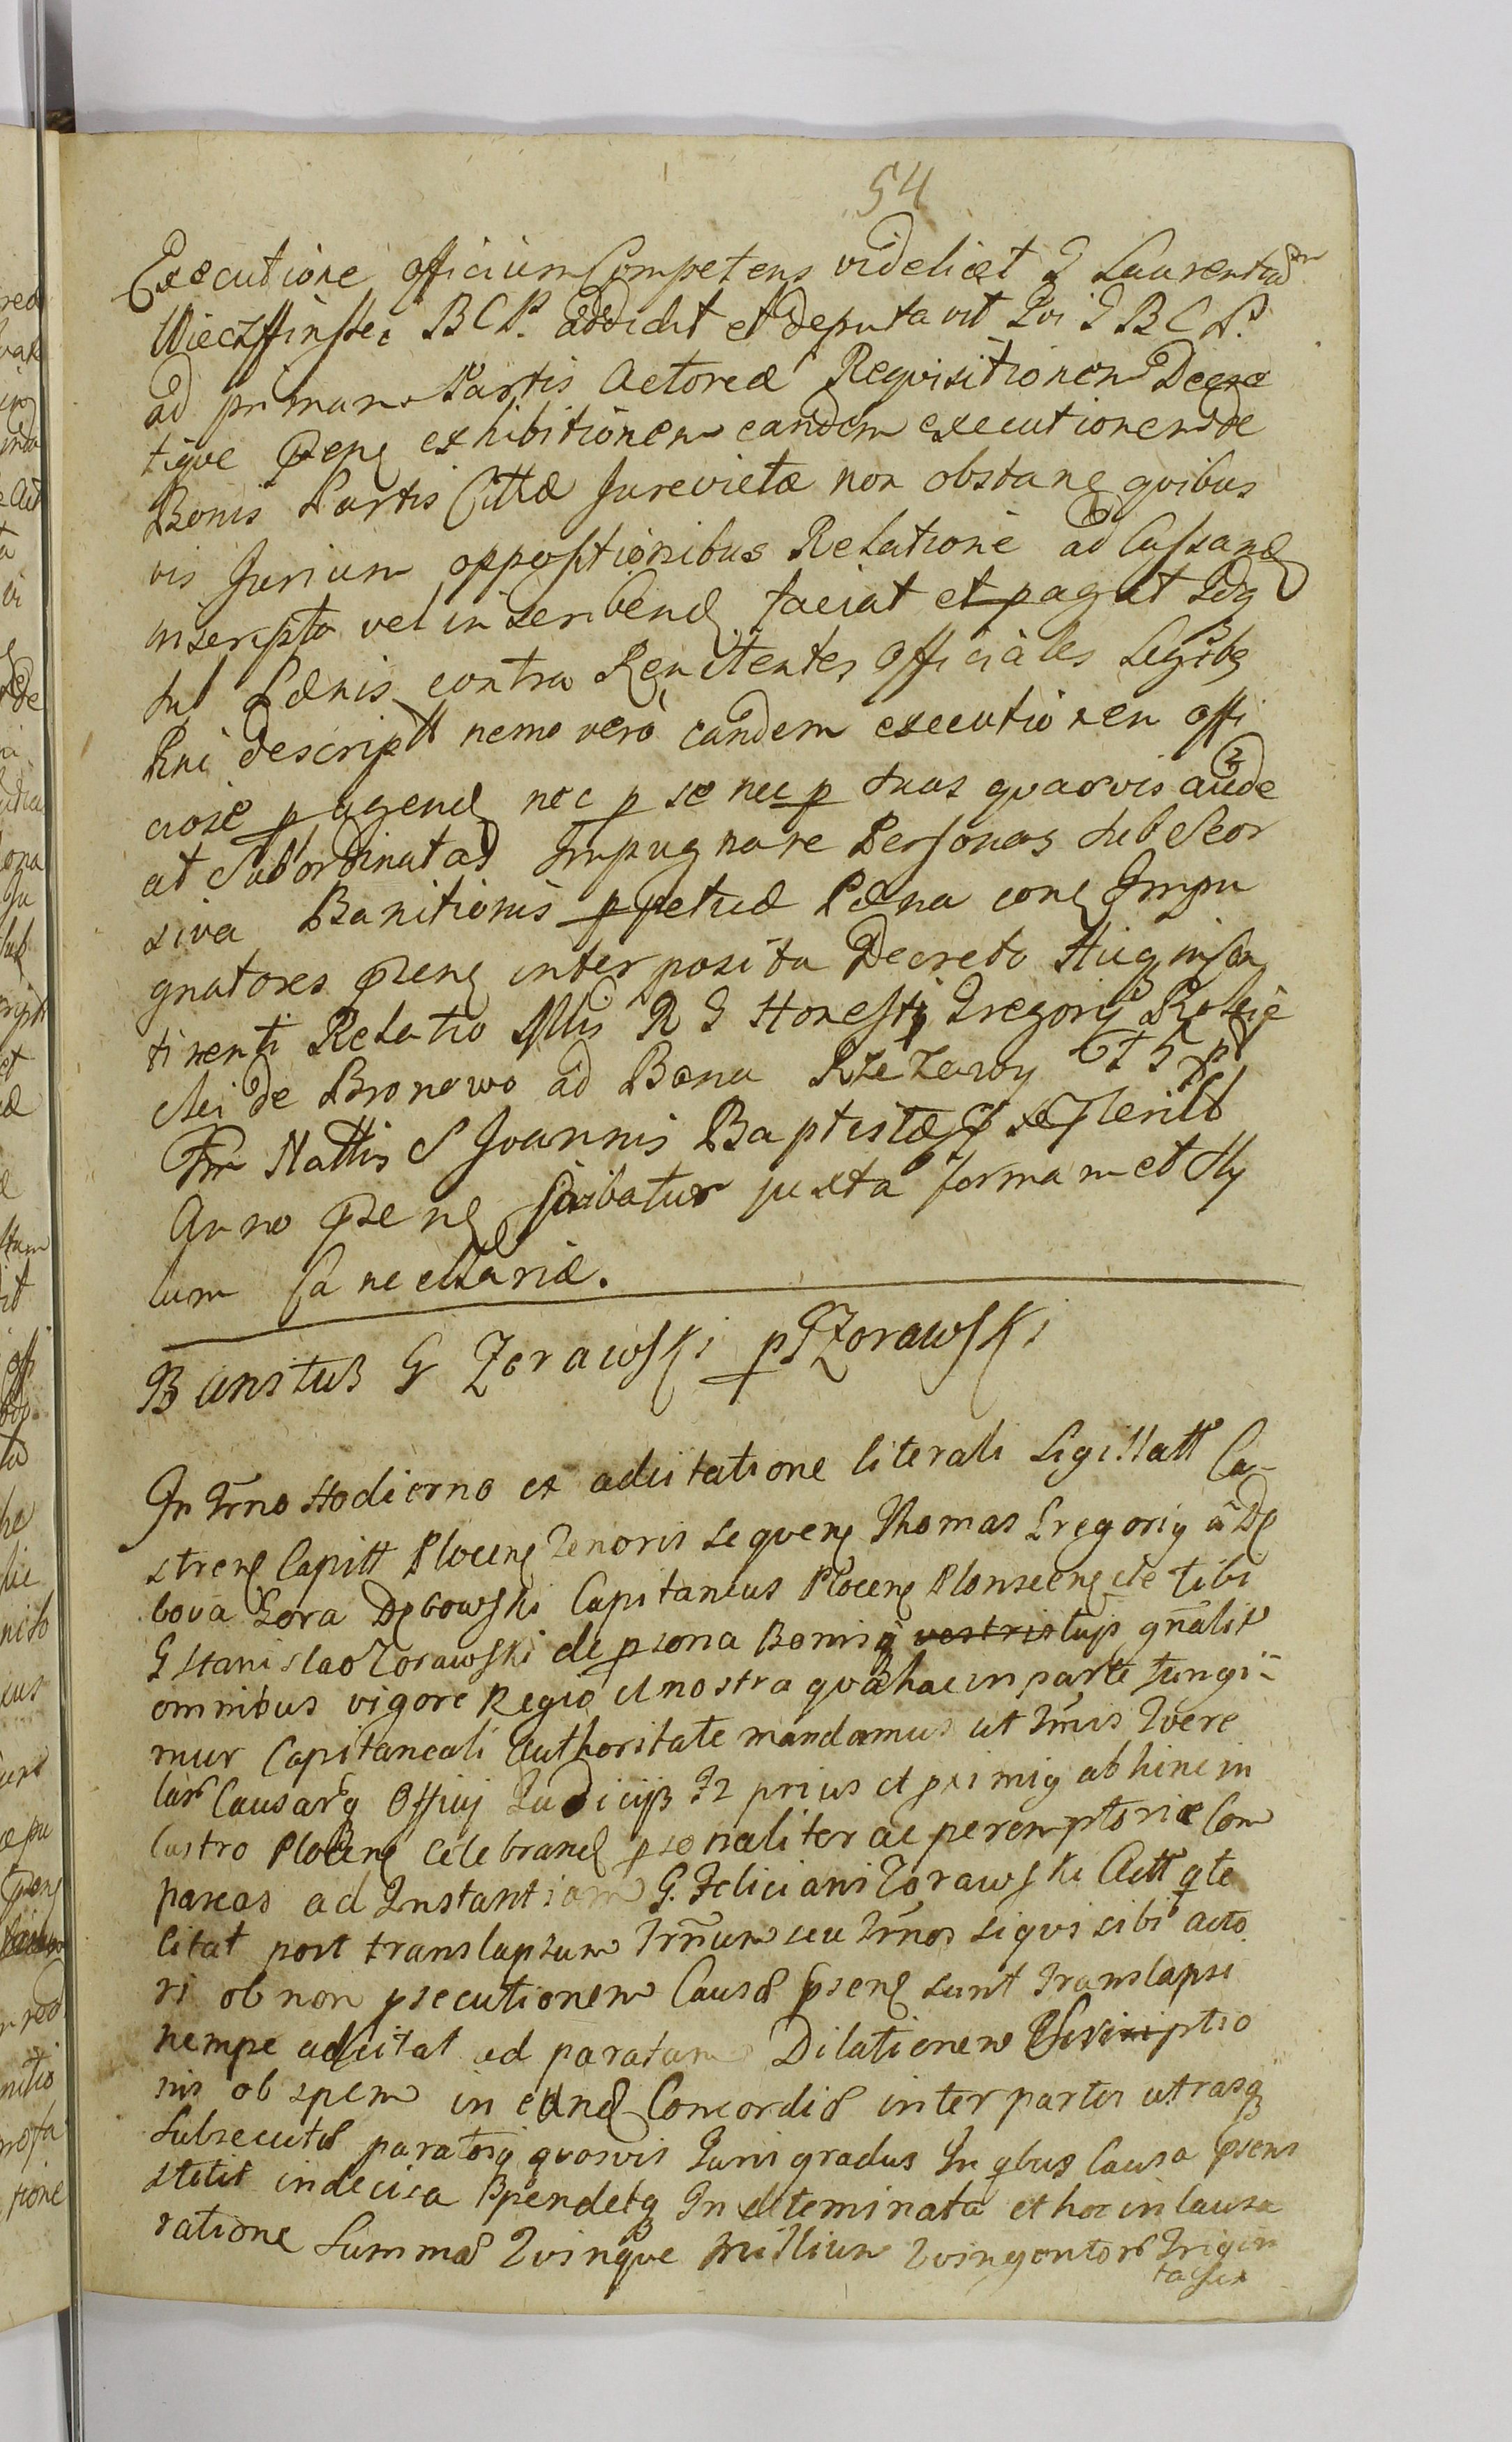 54
Executione officium Competens videlicet G Laurentiũ
Wieczffinski BCP. addidit et deputavit Qvi G B C P.
ad primam Partis Actoreæ Reqvisitionem Decre
tiqve Psenš exhibitionem eandem executionem de
Bonis Partis Cittæ Jurevictæ non obstanš qvibus
vis Jurium oppositionibus Relatione ad Cassand
inscripta vel inscribend faciat et pagat Idq
sub Pænis contra Renitentes Officiales Legibq
Rni descriptt nemo verò eandem executionem offi
ciose pagend nec p se nec p suas qvasvis aude
at Subordinatas Impugnare Personas sub Seor
siva Banitionis ppetuæ Pæna conš Impu
gnatores Psenš interposita Decreto Huq
tinenti Relatio Mlis R G Honesti Gregorij Rokic
kei de Bronowo ad Bona Rżezawy
Fr Nattis S Joannis Baptistæ
Anno Psenš scribatur juxta formam et Sty
lum Cancellariæ.
Banitus G Zorawski p G Zorawski
In Trno Hodierno ex adcitatione literali Sigillatt Ca-
strenš Capitt Plocenš Tenoris seqvenš Thomas Gregorij à Dę
bova Gora Dębowski Capitaneus Plocenš Plonscenš etc Tibi
G Stanislao Zorawski de psona Bonisq tuis gnãlitr
omnibus vigore Regio et nostra qva hac in parte fungi-
mur Capitaneali Authoritate mandamus ut Trnis Qvere
larũ Causarq Officij Judicijs Fr prius et primiq abhinc in
Castro Plocenš celebrand psonaliter ac peremptoriæ Com
pareas ad Instantiam G. Feliciani Zorawski Actt q te
citat post translapsum Trñum seu Trños si qvi sibi acto
ri ob non psecutionem Causæ psenš sunt translapsi
nempe adcitat ad paratam Dilationem
nis ob spem in eund Concordiæ inter partes utrasq
Subsecutæ paratosq qvosvis Juris gradus In qbus Causa psens
stetit indecisa Ppendetq Indeteminata et hoc in causa
ratione Summæ Qvinqve Millium Qvingentorũ Trigin
ta sex